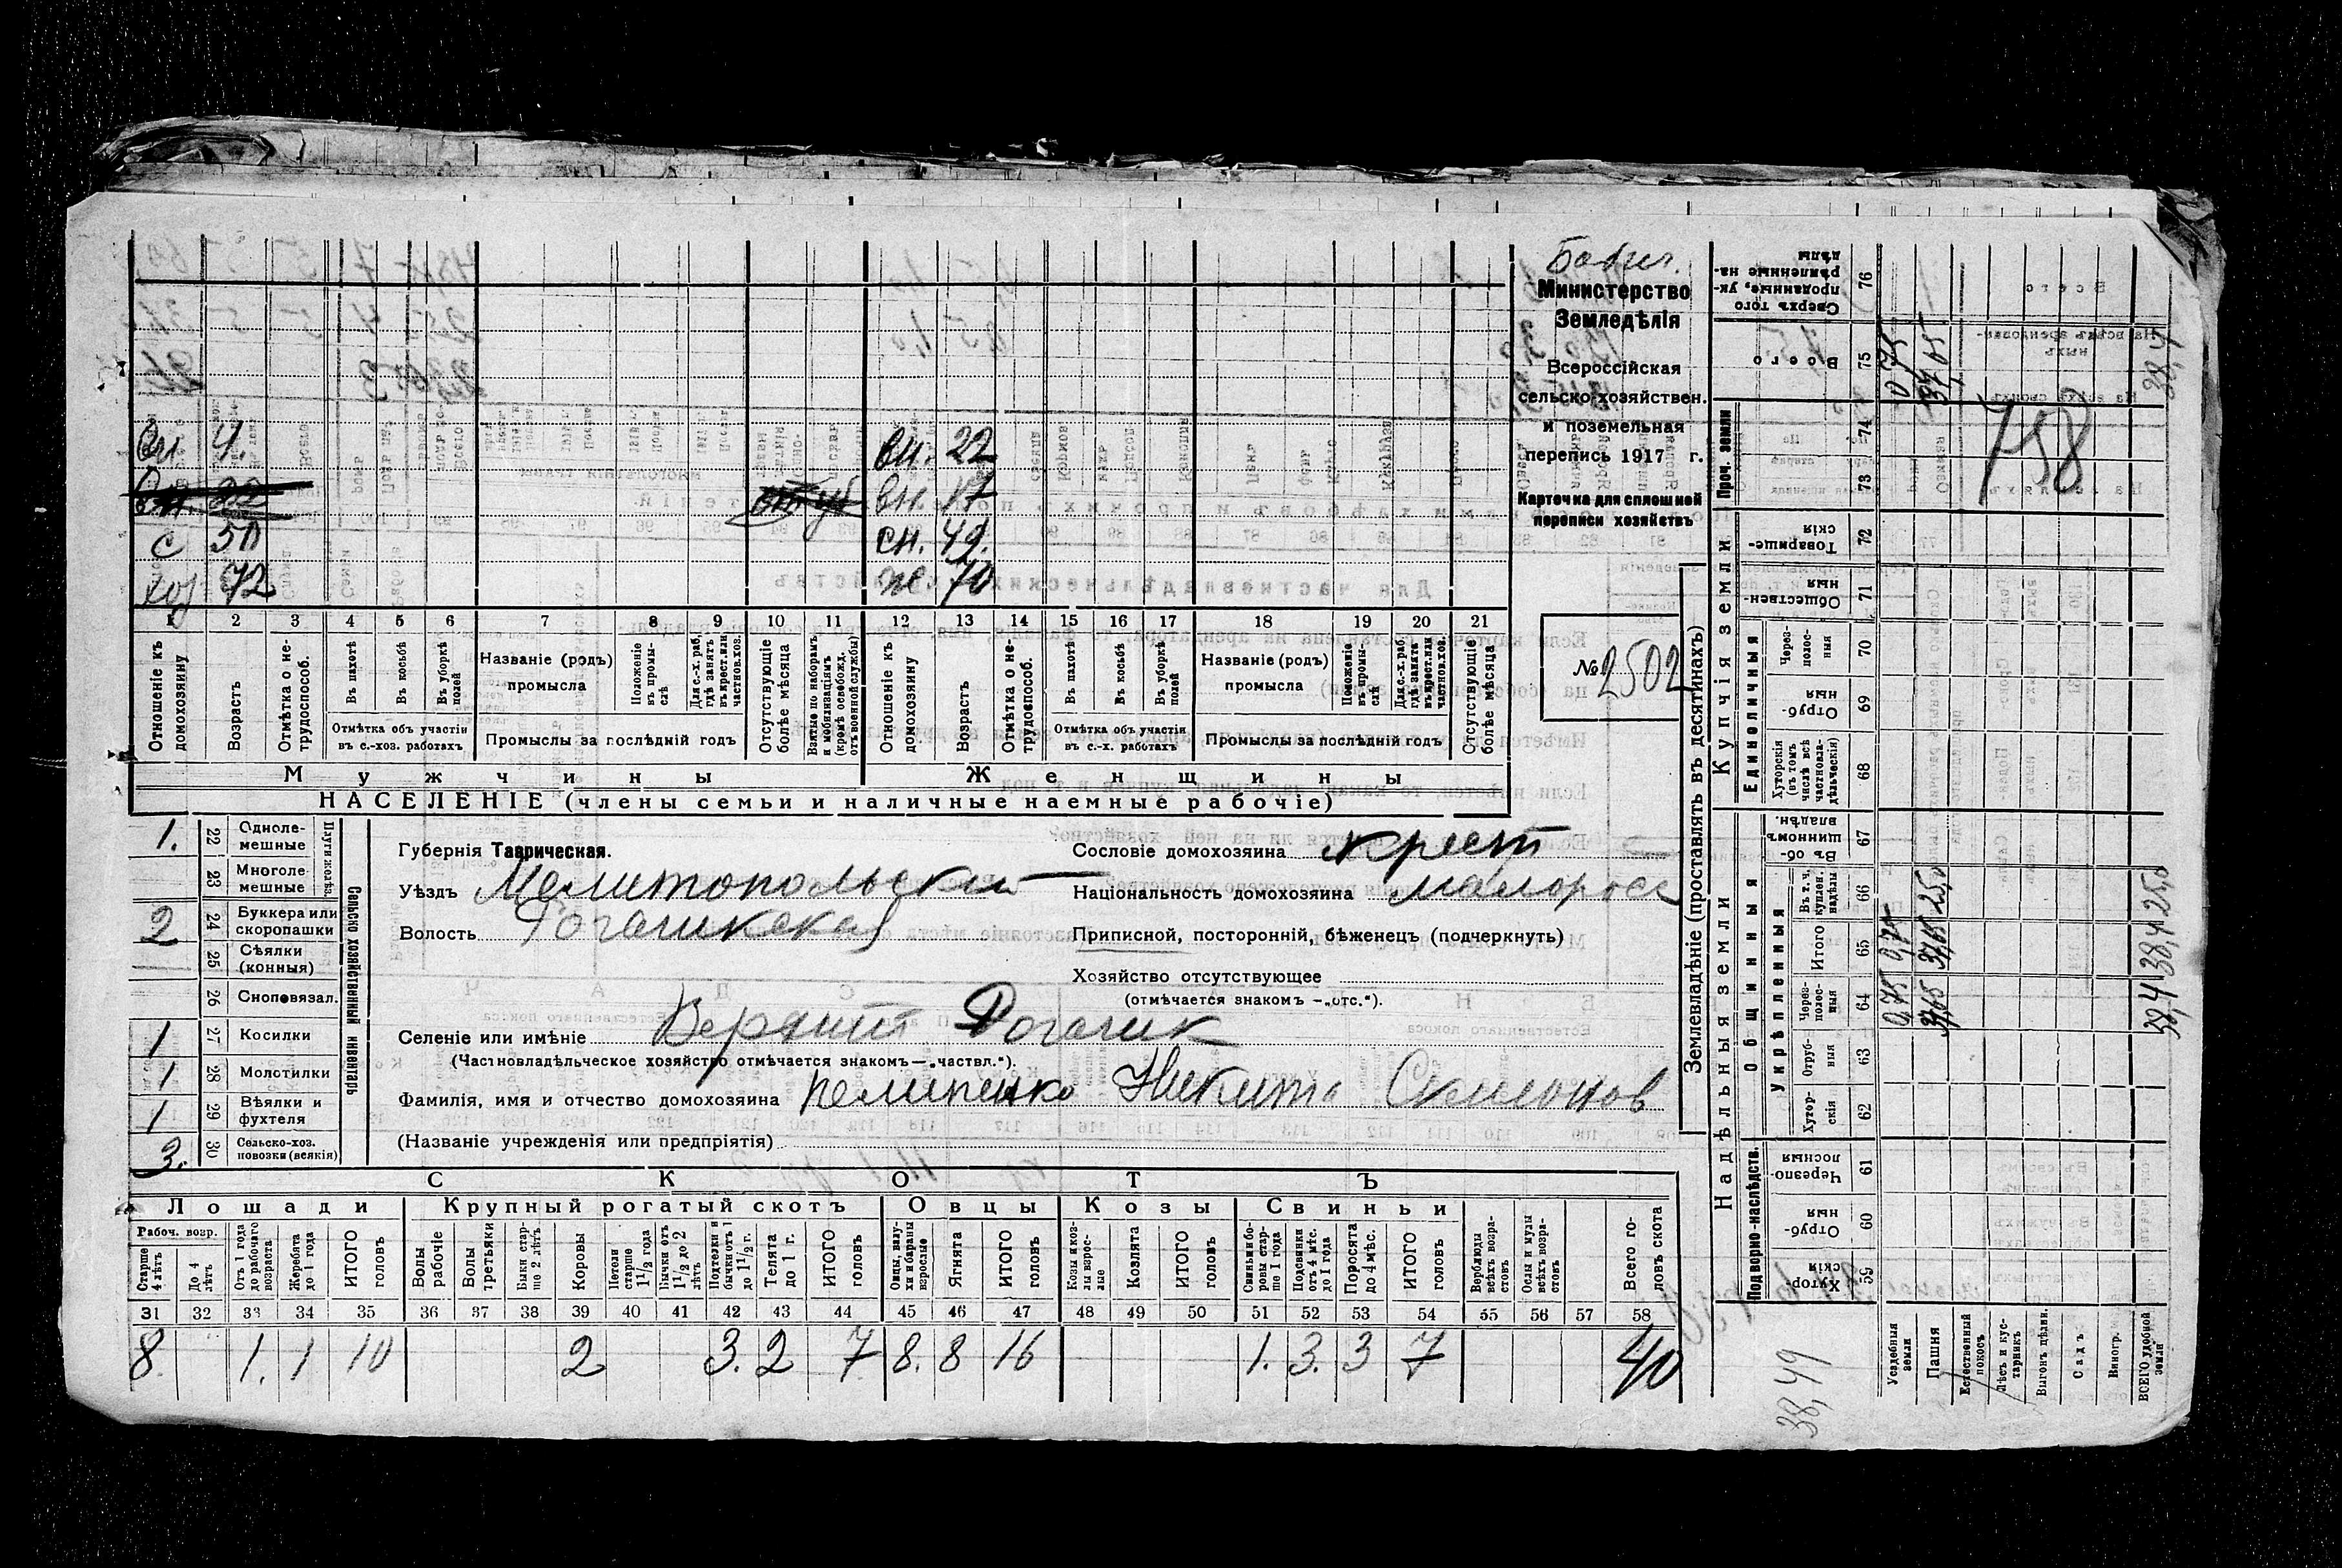 Бабич.
Министерство
Земледѣлія
Всероссійская
сельско-хозяйствен.
и поземельная
перепись 1917 г.
Карточка для сплошной
переписи хозяйствъ
№ 2502
вн 4. вн. 22
вн. 17
с 50 сн. 49.
хоз 72 ж. 70
1 2 3 4 5 6 7 8 9 10 11 12 13 14 15 16 17 18 19 20 21
Отношеніе къ домохозяину
Возрастъ
Отмѣтка о нетрудоспособ.
Въ пахотѣ
Въ косьбѣ
Въ уборкѣ полей
Отмѣтка объ участіи въ с.-хоз. работахъ
Названіе (родъ) промысла
Положеніе въ промыслѣ
Для с.-х. раб. гдѣ занятъ въ крест. или частнов. хоз.
Промыслы за послѣдній годъ
Отсутствующіе болѣе мѣсяца
Взятые по наборамъ и мобилизаціямъ (кромѣ освобожд. отъ военной службы)
Отношеніе къ домохозяину
Возрастъ
Отмѣтка о нетрудоспособ.
Въ пахотѣ
Въ косьбѣ
Въ уборкѣ полей
Отмѣтка объ участіи въ с.-х. работахъ
Названіе (родъ) промысла
Положеніе въ промыслѣ
Для с.-х. раб. гдѣ занята въ крест. или частнов. хоз.
Промыслы за послѣдній годъ
Отсутствующіе болѣе мѣсяца
Мужчины Женщины
НАСЕЛЕНІЕ (члены семьи и наличные наемные рабочіе)
Сельско-хозяйственный инвентарь
Плуги желѣз.
1. 22 Однолемешные
23 Многолемешные
2 24 Буккера или скоропашки
25 Сѣялки (конныя)
26 Сноповязал.
1 27 Косилки
1 28 Молотилки
1 29 Вѣялки и фухтеля
3. 30 Сельско-хоз. повозки (всякія)
Губернія Таврическая.
Уѣздъ Мелитопольскій
Волость Рогачикская
Сословіе домохозяина крест
Національность домохозяина малоросс
Приписной, посторонній, бѣженецъ (подчеркнуть)
Хозяйство отсутствующее
(отмѣчается знакомъ —„отс.“).
Селеніе или имѣніе Верхній Рогачик
(Частновладѣльческое хозяйство отмѣчается знакомъ—„частвл.“).
Фамилія, имя и отчество домохозяина Пелипенко Никита Семенов
(Названіе учрежденія или предпріятія)
СКОТЪ
Лошади Крупный рогатый скотъ Овцы Козы Свиньи
Рабоч. возр.
Старше 4 лѣтъ
До 4 лѣтъ
Отъ 1 года до рабочаго возраста
Жеребята до 1 года
ИТОГО головъ
Волы рабочіе
Волы третьяки
Быки старше 2 лѣтъ
Коровы
Нетели старше 1 1/2 года
Бычки отъ 1 1/2 до 2 лѣтъ
Подтелки и бычки отъ 1 до 1 1/2 г.
Телята до 1 г.
ИТОГО головъ
Овцы, валухи и бараны взрослые
Ягнята
ИТОГО головъ
Козы и козлы взрослые
Козлята
ИТОГО головъ
Свиньи и боровы старше 1 года
Подсвинки отъ 4 мѣс. до 1 года
Поросята до 4 мѣс.
ИТОГО головъ
Верблюды всѣхъ возрастовъ
Ослы и мулы всѣхъ возрастовъ
Всего головъ скота
31 32 33 34 35 36 37 38 39 40 41 42 43 44 45 46 47 48 49 50 51 52 53 54 55 56 57 58
8. 1. 1 10 2 3. 2 7 8. 8 16 1. 3. 3 7 40
Землевладѣніе (проставлять въ десятинахъ)
Надѣльныя земли Купчія земли
Подворно-наслѣдств.
Общинныя
Укрѣпленныя
Единоличныя
Проч. земли
Сверхъ того проданные, укрѣпленные надѣлы 76
Всего 75
74
73
Товарищескія 72
Общественныя 71
Черезполосныя 70
Отрубныя 69
Хуторскія (въ томъ числѣ всѣ частновладѣльческія) 68
Въ общинномъ владѣн. 67
Въ т. ч. куплен. надѣлы 66
Итого 65
Черезполосныя 64
Отрубныя 63
Хуторскія 62
Черезполосныя 61
Отрубныя 60
Хуторскія 59
Усадебныя земли 0,75 0,75 0,75
Пашня 37,65 37,65 25,0 37,65
Естественный покосъ
Лѣсъ и кустарникъ
Выгонъ цѣлин.
Садъ
Виногр.
ВСЕГО удобной земли 38,4 38,4 25,0 38,4
758
38,49